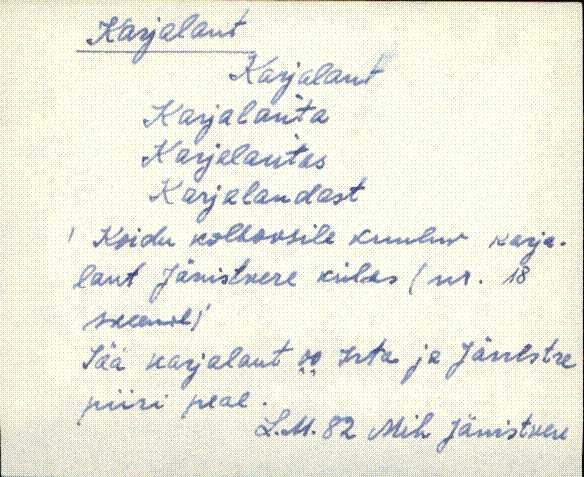 Karjalaut
Karjalaut
Karjalauta
Karjalautas
Karjalaudast
' Koidu kolhoosile kuuluv karja-
laut Jänistvere külas (nr. 18
skeemil)'
Sää karjalaut oo Irta ja Jänestre
piiri peal.
L.M. 82 Mih Jänistvere